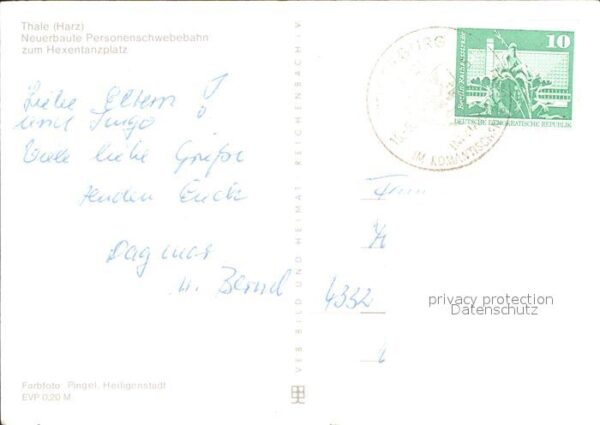 Thale (Harz)
Neuerbaute Personenschwebebahn
zum Hexentanzplatz
Liebe Eltern
und Ingo!
Viele liebe Grüße
senden Euch
Dagmar
u. Bernd
Farbfoto: Pingel, Heiligenstadt
EVP 0,20 M
VEB BILD UND HEIMAT REICHENBACH · V
BURG
10
DEUTSCHE DEMOKRATISCHE REPUBLIK
4332
privacy protection
Datenschutz